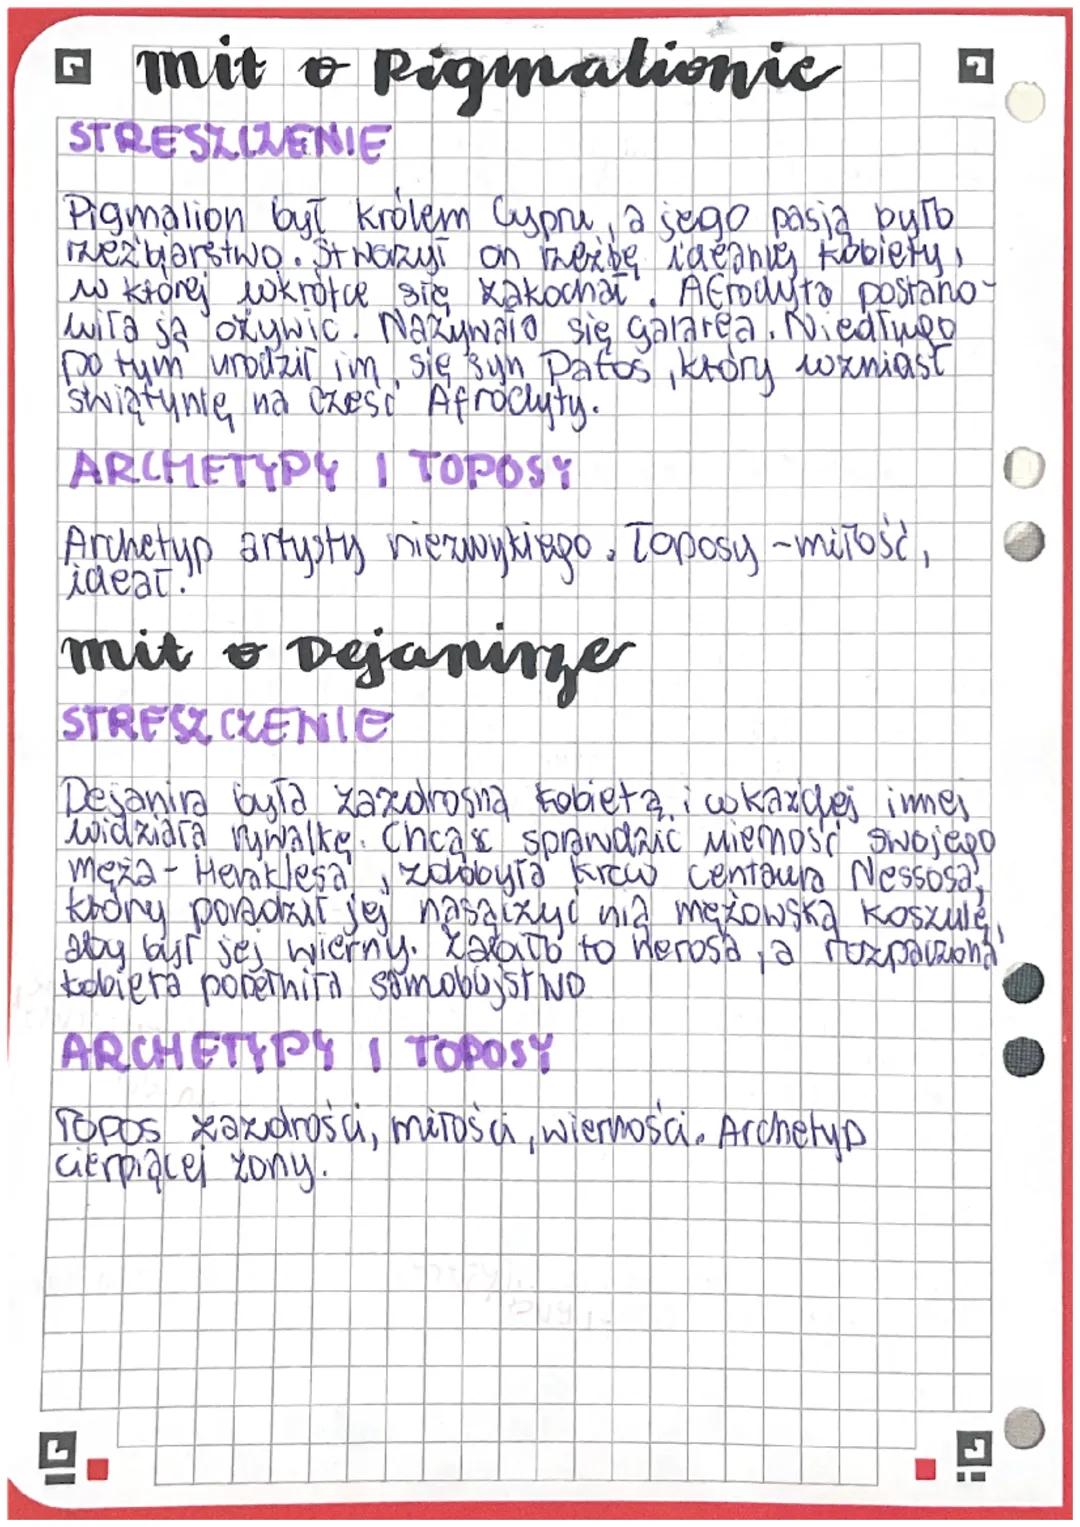 mit o Pigmalionie
STRESZCZENIE
Pigmalion był królem Cypru, a jego pasją było
rzeźbiarstwo. Stworzył on rzeźbę idealnej kobiety,
w której wkrótce się zakochał. Afrodyta postano-
wiła ją ożywić. Nazywała się Galatea. Niedługo
po tym urodził im się syn Pafos, który wzniósł
świątynię na cześć Afrodyty.
ARCHETYPY I TOPOSY
Archetyp artysty niezwykłego. Toposy - miłość,
ideał.
mit o Dejanirze
STRESZCZENIE
Dejanira była zazdrosną kobietą i w każdej innej
widziała rywalkę. Chcąc sprawdzić wierność swojego
męża - Heraklesa, zdobyła krew centaura Nessosa,
który poradził jej nasączyć nią mężowską koszulę,
aby był jej wierny. Zabiło to herosa, a rozpaczona
kobieta popełniła samobójstwo
ARCHETYPY I TOPOSY
Topos zazdrości, miłości, wierności. Archetyp
cierpiącej żony.